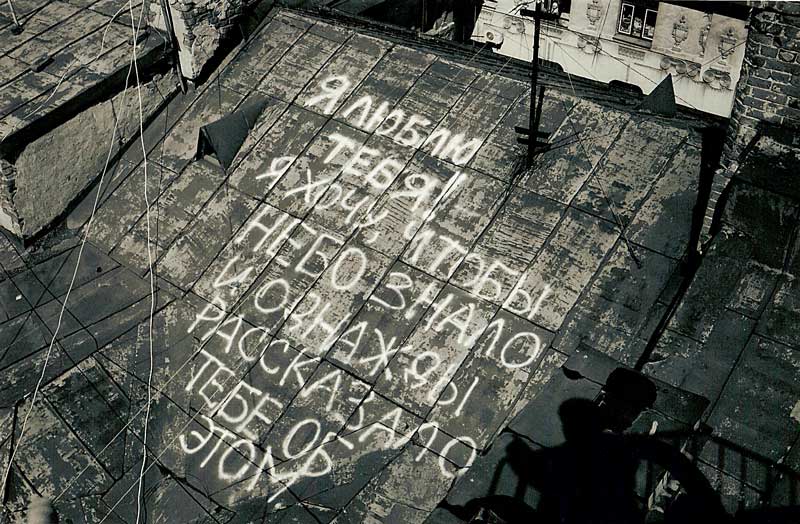 Я ЛЮБЛЮ
ТЕБЯ!
Я ХОЧУ, ЧТОБЫ
НЕБО ЗНАЛО
И ОДНАЖДЫ
РАССКАЗАЛО
ТЕБЕ ОБ
ЭТОМ